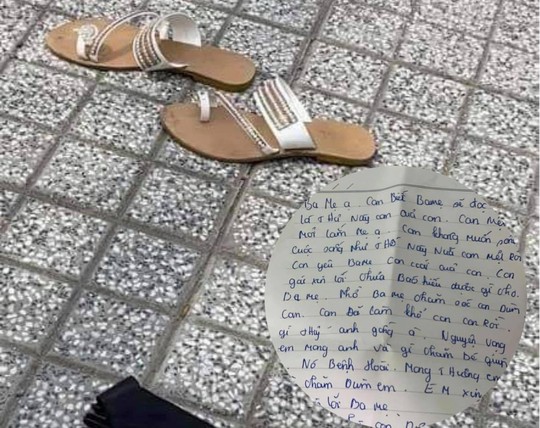 Ba Mẹ ạ Con Biết Bamẹ sẽ đọc
lá thư Này con con... Con Mệt
Mỏi lắm Mẹ ạ... con không muốn sống
Cuộc sống Như thế Này Nữa con Mệt Rồi
Con yêu Bamẹ Con con. Con
gái xin lỗi Chưa Báo hiếu được gì cho.
Ba mẹ. Nhờ Ba mẹ chăm sóc con Dùm
Con. Con Đã làm khổ con con Rồi.
gì anh ạ. Nguyện Vọng
em mong anh và gì chăm bé
Nó Bệnh Hoài. Mong Thương em
chăm Dùm em. EM xin
lỗi Ba mẹ
con